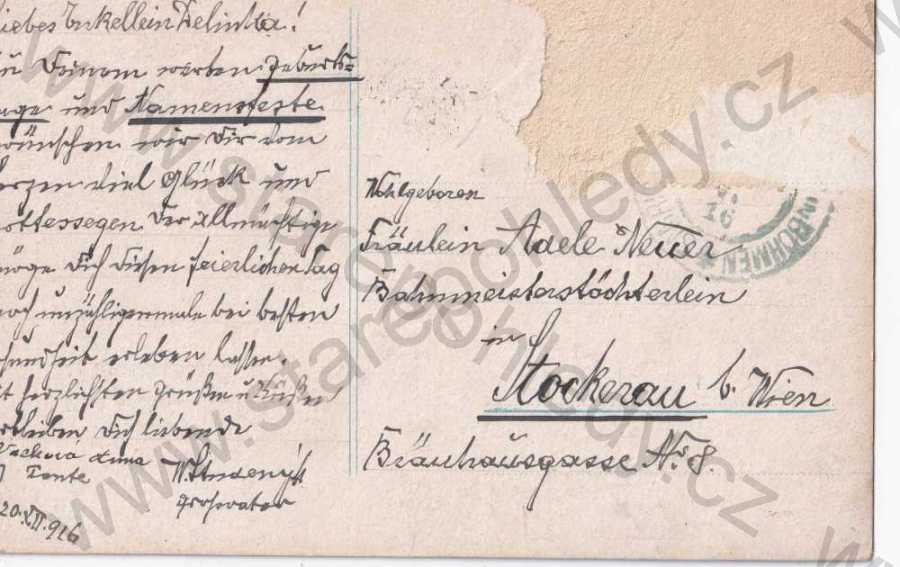 liebes Enkellein Delinka!
zu Deinem werten Geburts=
tage und Namensfeste
wünschen wir Dir vom
Herzen viel Glück und
Gottessegen. Der Allmächtige
möge Dich diesen feierlichen Tag
noch unzähligemale bei besten
Gesundheit erleben lassen.
Mit herzlichsten Grüßen u Küßen
verbleiben Dich liebende
Tante
Großvater
20.XII.916
Wohlgeboren
Fräulein Adele Neuer
Bahnmeisterstöchterlein
in
Stockerau b. Wien
Bräuhausgasse No 8.
16
IN BÖHMEN
www.starepohledy.cz